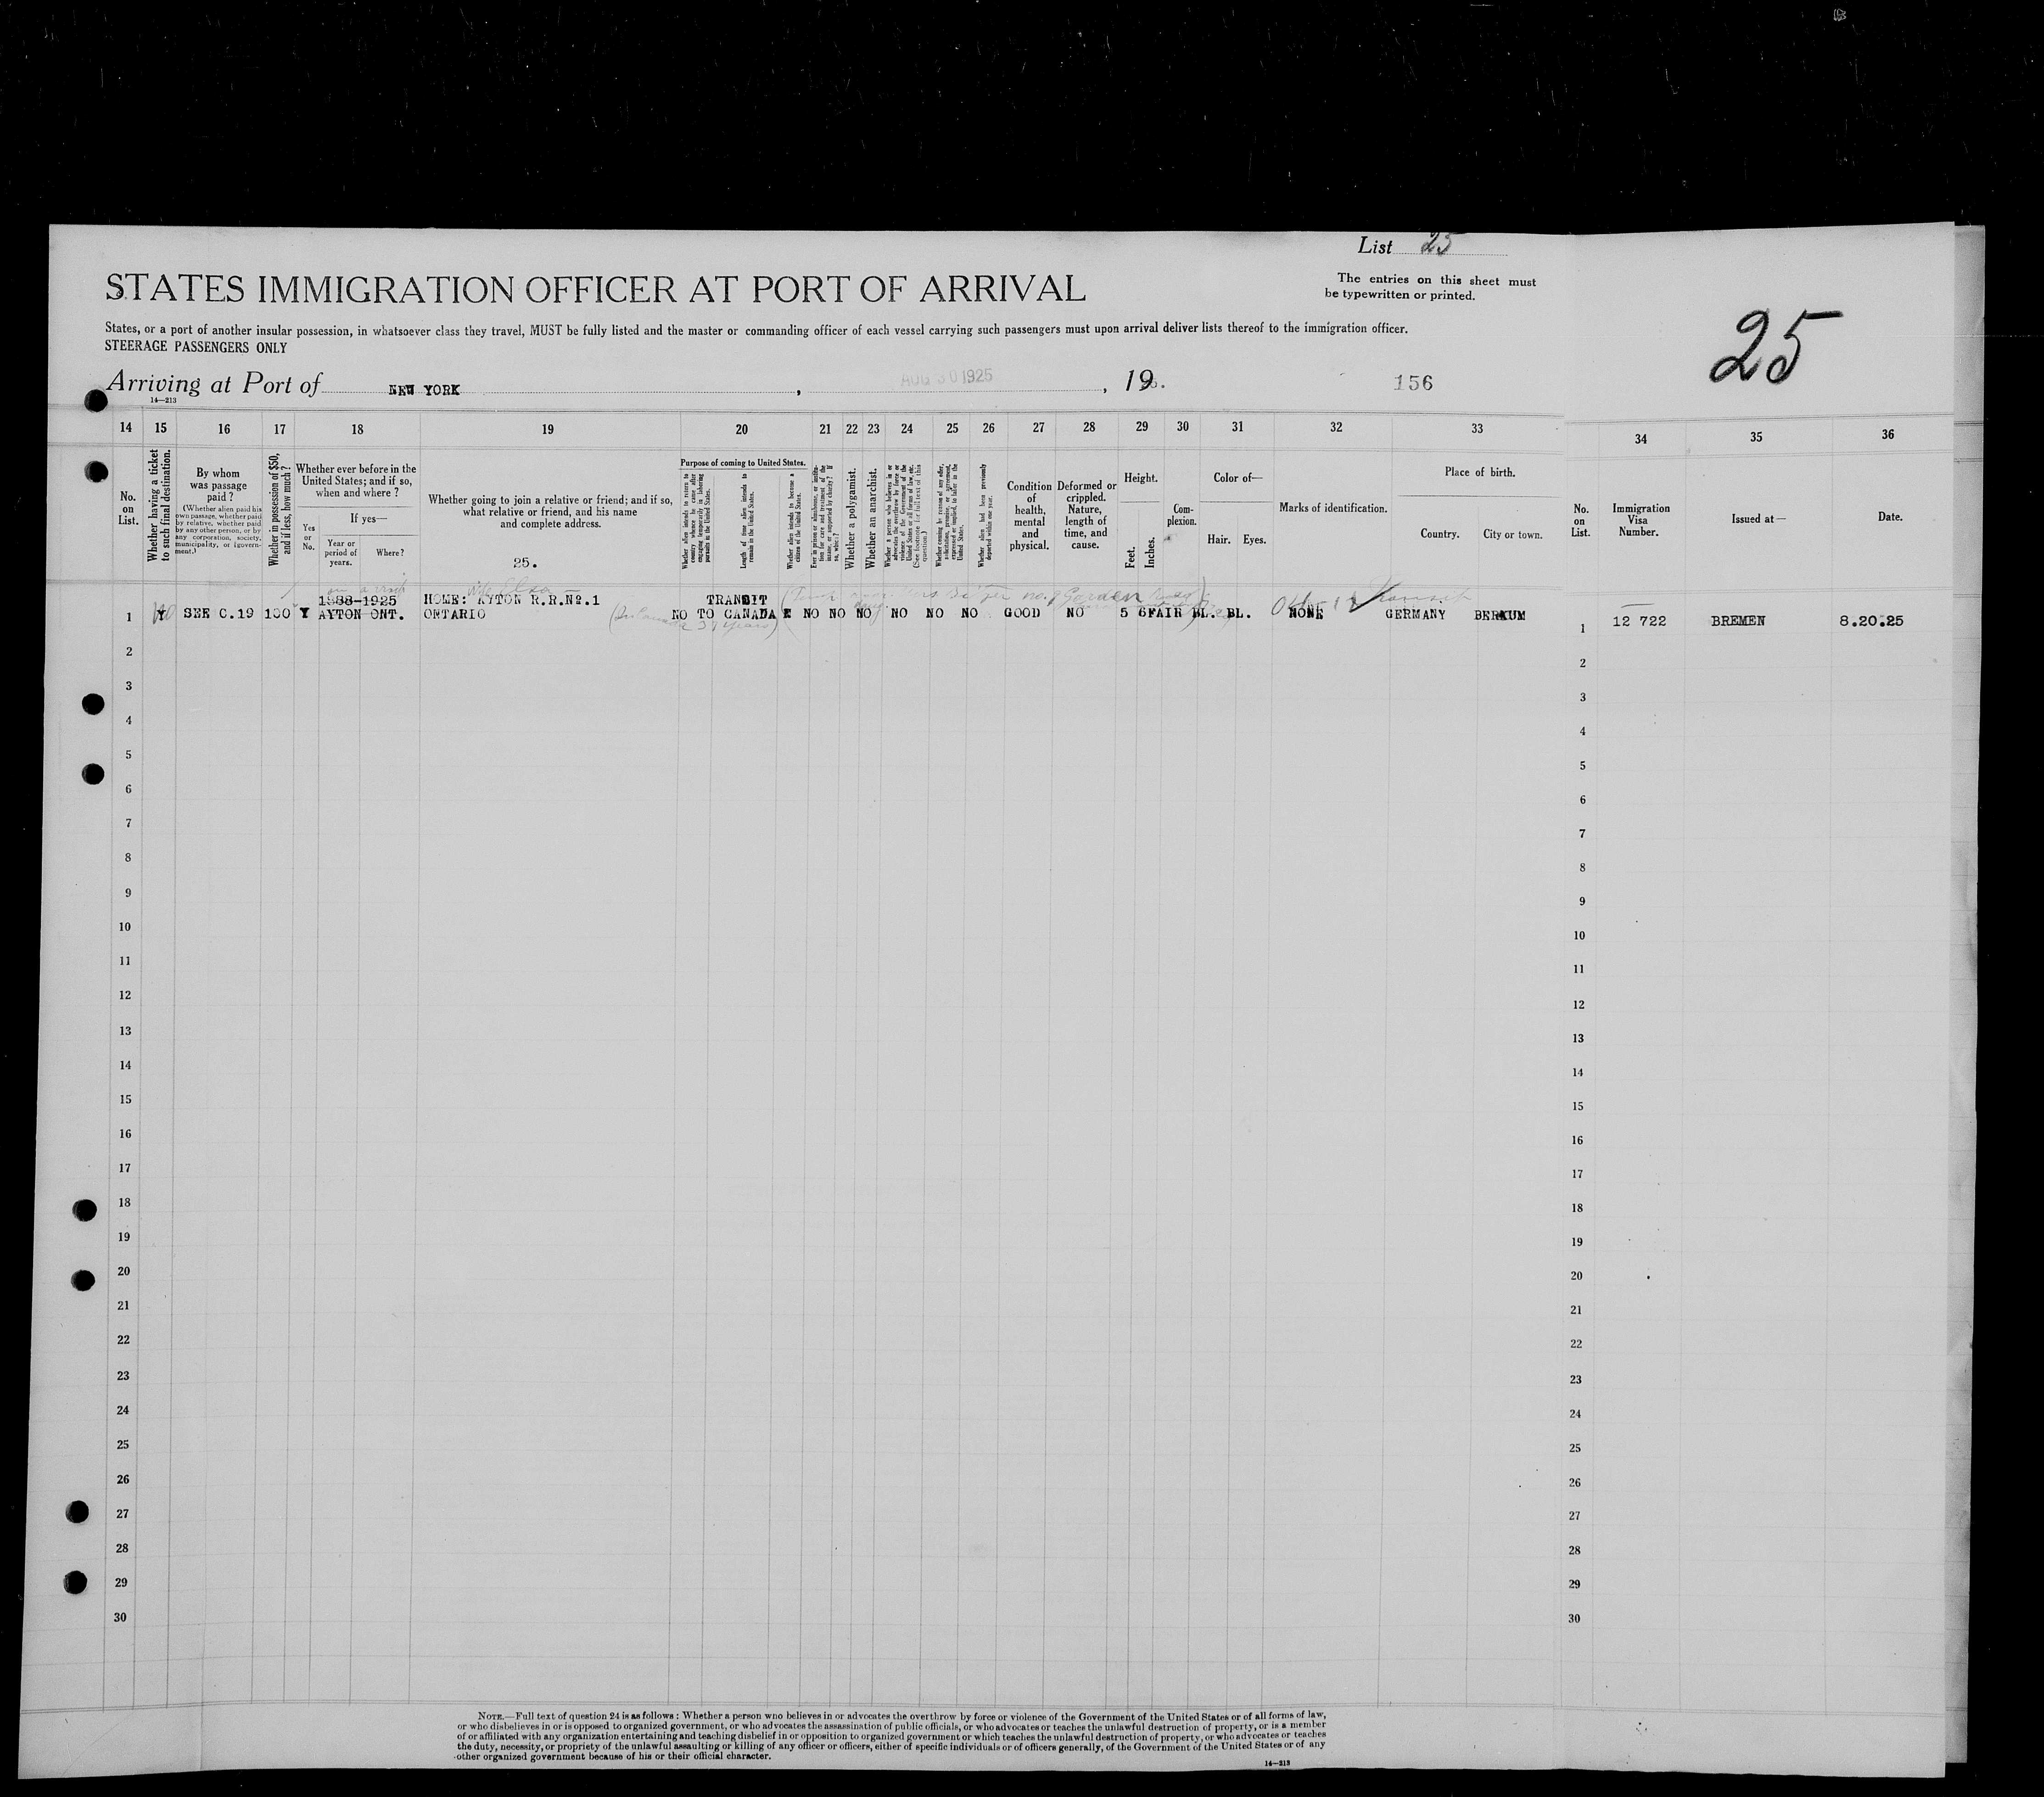 List 25
STATES IMMIGRATION OFFICER AT PORT OF ARRIVAL
The entries on this sheet must
be typewritten or printed.
25
States, or a port of another insular possession, in whatsoever class they travel, MUST be fully listed and the master or commanding officer of each vessel carrying such passengers must upon arrival deliver lists thereof to the immigration officer.
STEERAGE PASSENGERS ONLY
Arriving at Port of NEW YORK, AUG 30 1925, 19 156
14—213
14 15 16 17 18 19 20 21 22 23 24 25 26 27 28 29 30 31 32 33 34 35 36
No. on List.
Whether having a ticket to such final destination.
By whom was passage paid?
(Whether alien paid his own passage, whether paid by relative, whether paid by any other person, or by any corporation, society, municipality, or government.)
Whether in possession of $50, and if less, how much?
Whether ever before in the United States; and if so, when and where?
Yes or No.
If yes—
Year or period of years.
Where?
Whether going to join a relative or friend; and if so, what relative or friend, and his name and complete address.
25.
Purpose of coming to United States.
Whether alien intends to return to country whence he came after engaging temporarily in laboring pursuits in the United States.
Length of time alien intends to remain in the United States.
Whether alien intends to become a citizen of the United States.
Ever in prison or almshouse, or institution for care and treatment of the insane, or supported by charity? If so, which?
Whether a polygamist.
Whether an anarchist.
Whether a person who believes in or advocates the overthrow by force or violence of the Government of the United States or all forms of law, etc. (See footnote for full text of this question.)
Whether coming by reason of any offer, solicitation, promise, or agreement, expressed or implied, to labor in the United States.
Whether alien had been previously deported within one year.
Condition of health, mental and physical.
Deformed or crippled. Nature, length of time, and cause.
Height.
Feet. Inches.
Complexion.
Color of—
Hair. Eyes.
Marks of identification.
Place of birth.
Country. City or town.
No. on List.
Immigration Visa Number.
Issued at—
Date.
1988-1925 HOME: AYTON R.R.Nº.1 TRANSIT
1 Y SEE C.19 100 Y AYTON ONT. ONTARIO NO TO CANADA NO NO NO NO NO NO GOOD NO 5 6 FAIR BL. BL. NONE GERMANY BERKUM 1 12 722 BREMEN 8.20.25
2 2
3 3
4 4
5 5
6 6
7 7
8 8
9 9
10 10
11 11
12 12
13 13
14 14
15 15
16 16
17 17
18 18
19 19
20 20
21 21
22 22
23 23
24 24
25 25
26 26
27 27
28 28
29 29
30 30
NOTE.—Full text of question 24 is as follows: Whether a person who believes in or advocates the overthrow by force or violence of the Government of the United States or of all forms of law,
or who disbelieves in or is opposed to organized government, or who advocates the assassination of public officials, or who advocates or teaches the unlawful destruction of property, or is a member
of or affiliated with any organization entertaining and teaching disbelief in or opposition to organized government or which teaches the unlawful destruction of property, or who advocates or teaches
the duty, necessity, or propriety of the unlawful assaulting or killing of any officer or officers, either of specific individuals or of officers generally, of the Government of the United States or of any
other organized government because of his or their official character.
14—213